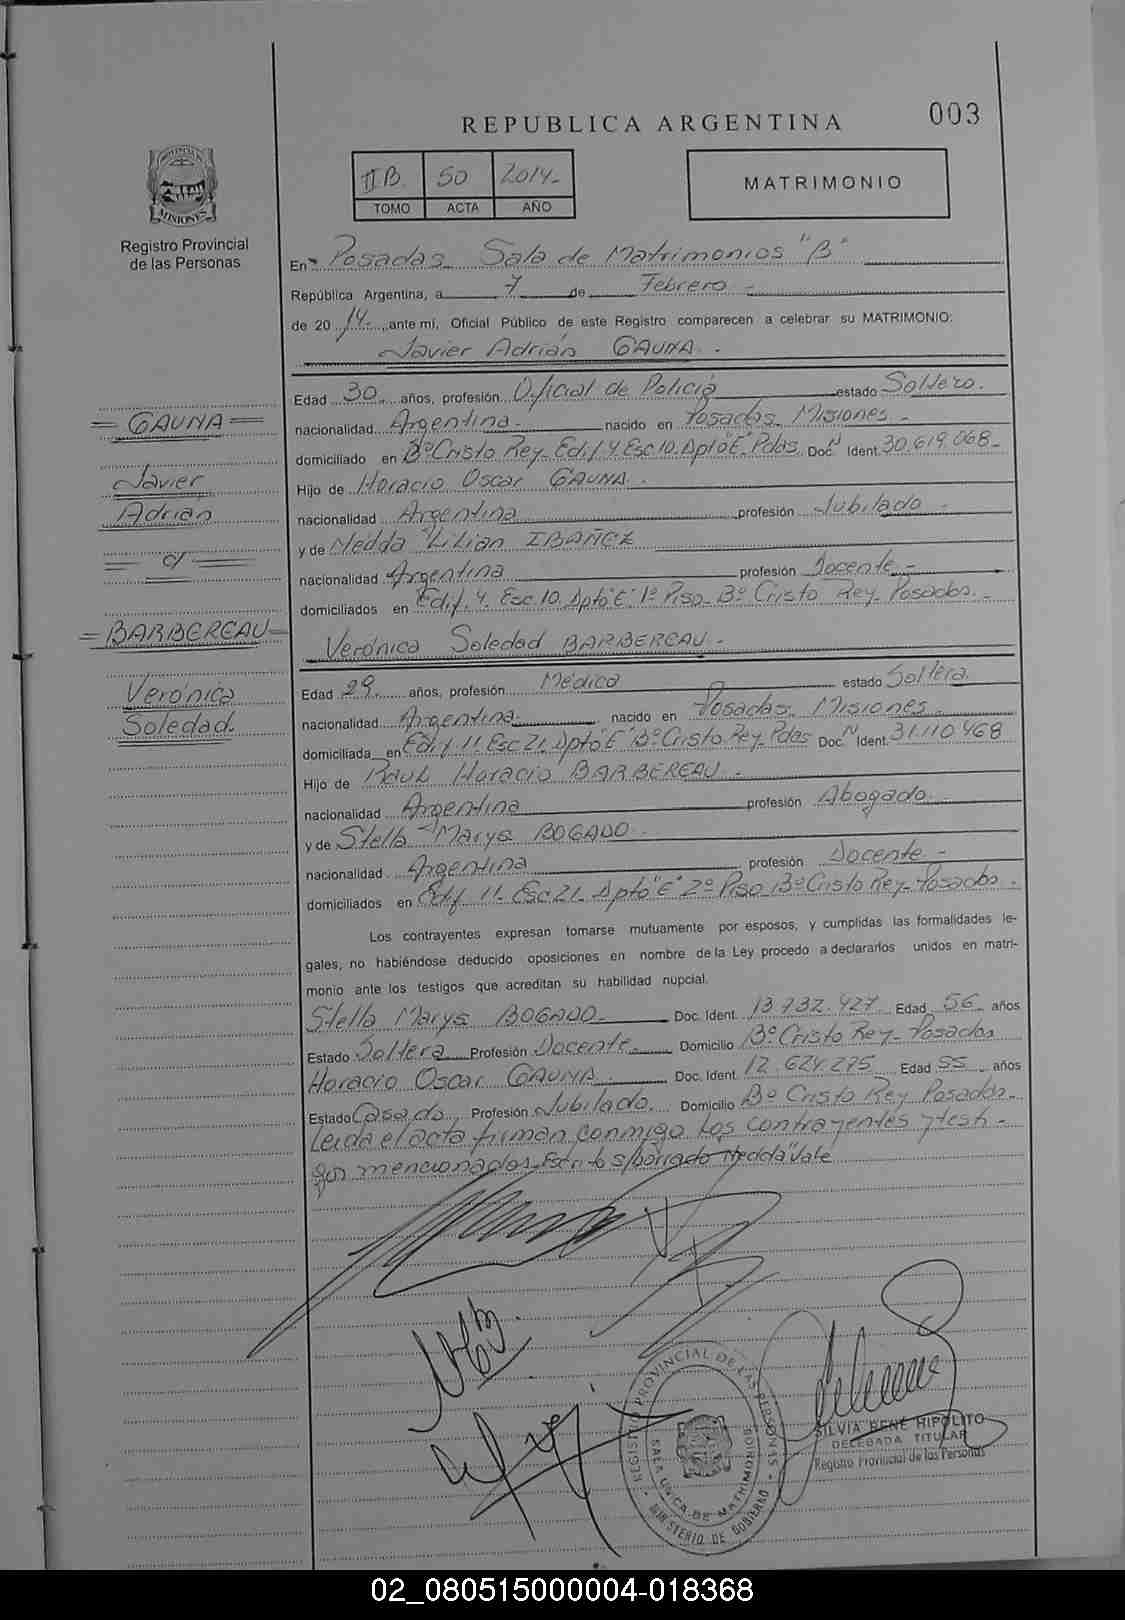 REPUBLICA ARGENTINA
003
II B. 50 2014-
TOMO ACTA AÑO
MATRIMONIO
Registro Provincial
de las Personas
En Posadas Sala de Matrimonios "B"
República Argentina, a 7 de Febrero -
de 20 14- ante mí, Oficial Público de este Registro comparecen a celebrar su MATRIMONIO:
Javier Adrián GAUNA.
Edad 30 años, profesión Oficial de Policía estado Soltero.
nacionalidad Argentina nacido en Posadas Misiones
domiciliado en Bº Cristo Rey Edif. 4 Esc 10. Dpto "E" Pdas Doc. N Ident. 30.619.068-
Hijo de Horacio Oscar GAUNA.
nacionalidad Argentina profesión Jubilado -
y de Nedda Lilian IBAÑEZ
nacionalidad Argentina profesión Docente -
domiciliados en Edif. 4. Esc 10. Dpto "E" 1º Piso Bº Cristo Rey Posadas.
Verónica Soledad BARBEREAU.
Edad 29 años, profesión Médica estado Soltera.
nacionalidad Argentina nacido en Posadas Misiones
domiciliada en Edif 11. Esc 21. Dpto "E" Bº Cristo Rey Pdas Doc. N Ident. 31.110.468
Hijo de Raul Horacio BARBEREAU -
nacionalidad Argentina profesión Abogado
y de Stella Marys BOGADO
nacionalidad Argentina profesión Docente -
domiciliados en Edif 11. Esc 21. Dpto "E" 2º Piso Bº Cristo Rey Posadas.
Los contrayentes expresan tomarse mutuamente por esposos, y cumplidas las formalidades le-
gales, no habiéndose deducido oposiciones en nombre de la Ley procedo a declararlos unidos en matri-
monio ante los testigos que acreditan su habilidad nupcial.
Stella Marys BOGADO Doc. Ident. 13.732.427 Edad 56 años
Estado Soltera Profesión Docente Domicilio Bº Cristo Rey Posadas
Horacio Oscar GAUNA Doc. Ident. 12.624.275 Edad 55 años
Estado Casado Profesión Jubilado. Domicilio Bº Cristo Rey Posadas
Leida el acta firman conmigo los contrayentes y testi-
gos mencionados. Escrito s/borrado "Nedda" Vale
= GAUNA =
Javier
Adrián
= c/ =
= BARBEREAU =
Verónica
Soledad.
REGISTRO PROVINCIAL DE LAS PERSONAS
SALA UNICA DE MATRIMONIOS
MINISTERIO DE GOBIERNO
SILVIA RENÉ HIPOLITO
DELEGADA TITULAR
Registro Provincial de las Personas
02_080515000004-018368